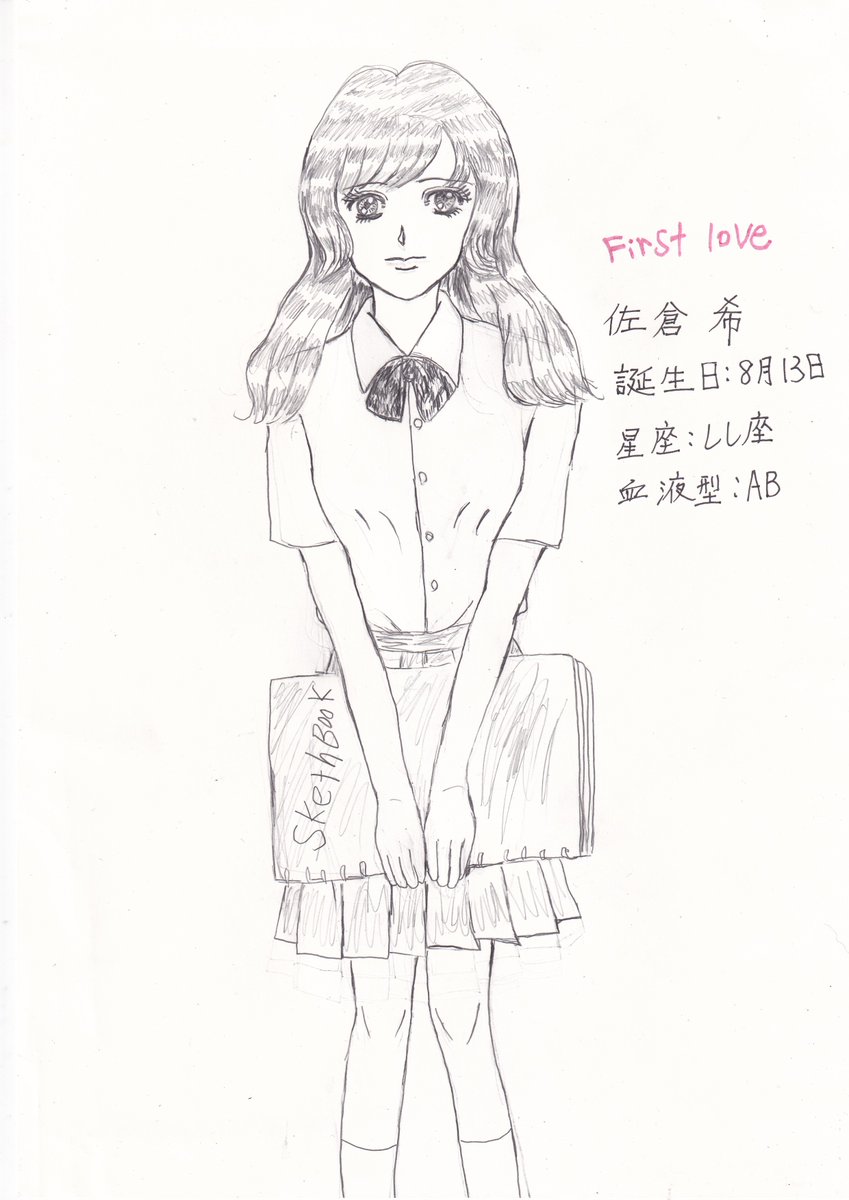 First love
佐倉 希
誕生日:8月13日
星座:しし座
血液型:AB
SkethBook